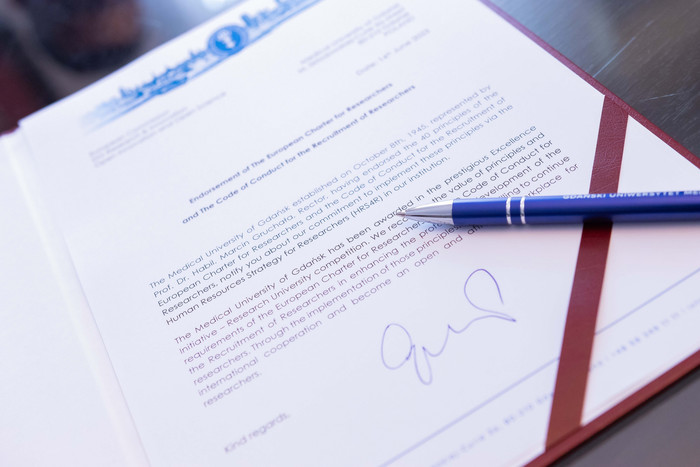 Date: 14th June 2023
Endorsement of The European Charter for Researchers
and The Code of Conduct for the Recruitment of Researchers
The Medical University of Gdańsk established on October 8th, 1945, represented by
Prof. Dr. Habil. Marcin Gruchała, Rector, having endorsed the 40 principles of the
European Charter for Researchers and the Code of Conduct for the Recruitment of
Researchers, notify you about our commitment to implement these principles via the
Human Resources Strategy for Researchers (HRS4R) in our institution.
The Medical University of Gdańsk has been awarded in the prestigious Excellence
Initiative – Research University competition. We the value of principles and
requirements of the European Charter for Researchers Code of Conduct for
the Recruitment of Researchers in enhancing the development of the
researchers. Through the implementation of those principles to continue
international cooperation and become an open and workplace for
researchers.
Kind regards,
GDAŃSKI UNIWERSYTET